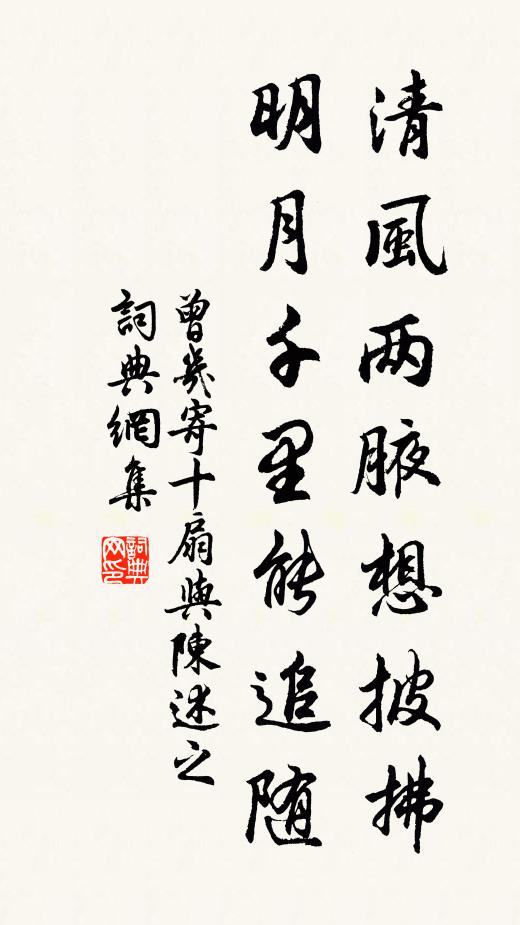 清風两腋想披拂
明月千里能追随
曾幾寄十扇與陳述之
詞典網集
詞典網印